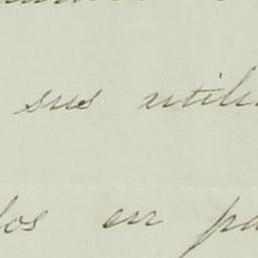 sus utili
los en pa